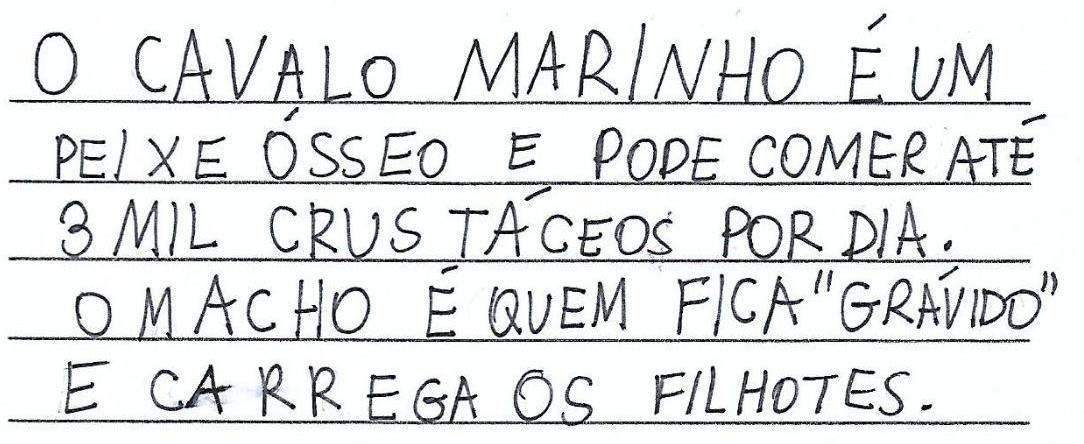 O CAVALO MARINHO É UM
PEIXE ÓSSEO E PODE COMER ATÉ
3 MIL CRUSTÁCEOS POR DIA.
O MACHO É QUEM FICA "GRÁVIDO"
E CARREGA OS FILHOTES.